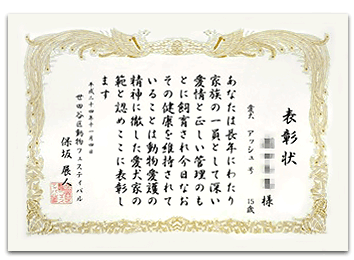 表彰状
様
愛犬 アッシュ号 15歳
あなたは長年にわたり
家族の一員として深い
愛情と正しい管理のも
とに飼育され今日なお
その健康を維持されて
いることは動物愛護の
精神に徹した愛犬家の
範と認めここに表彰し
ます
平成二十四年十一月四日
世田谷区動物フェスティバル
保坂展人